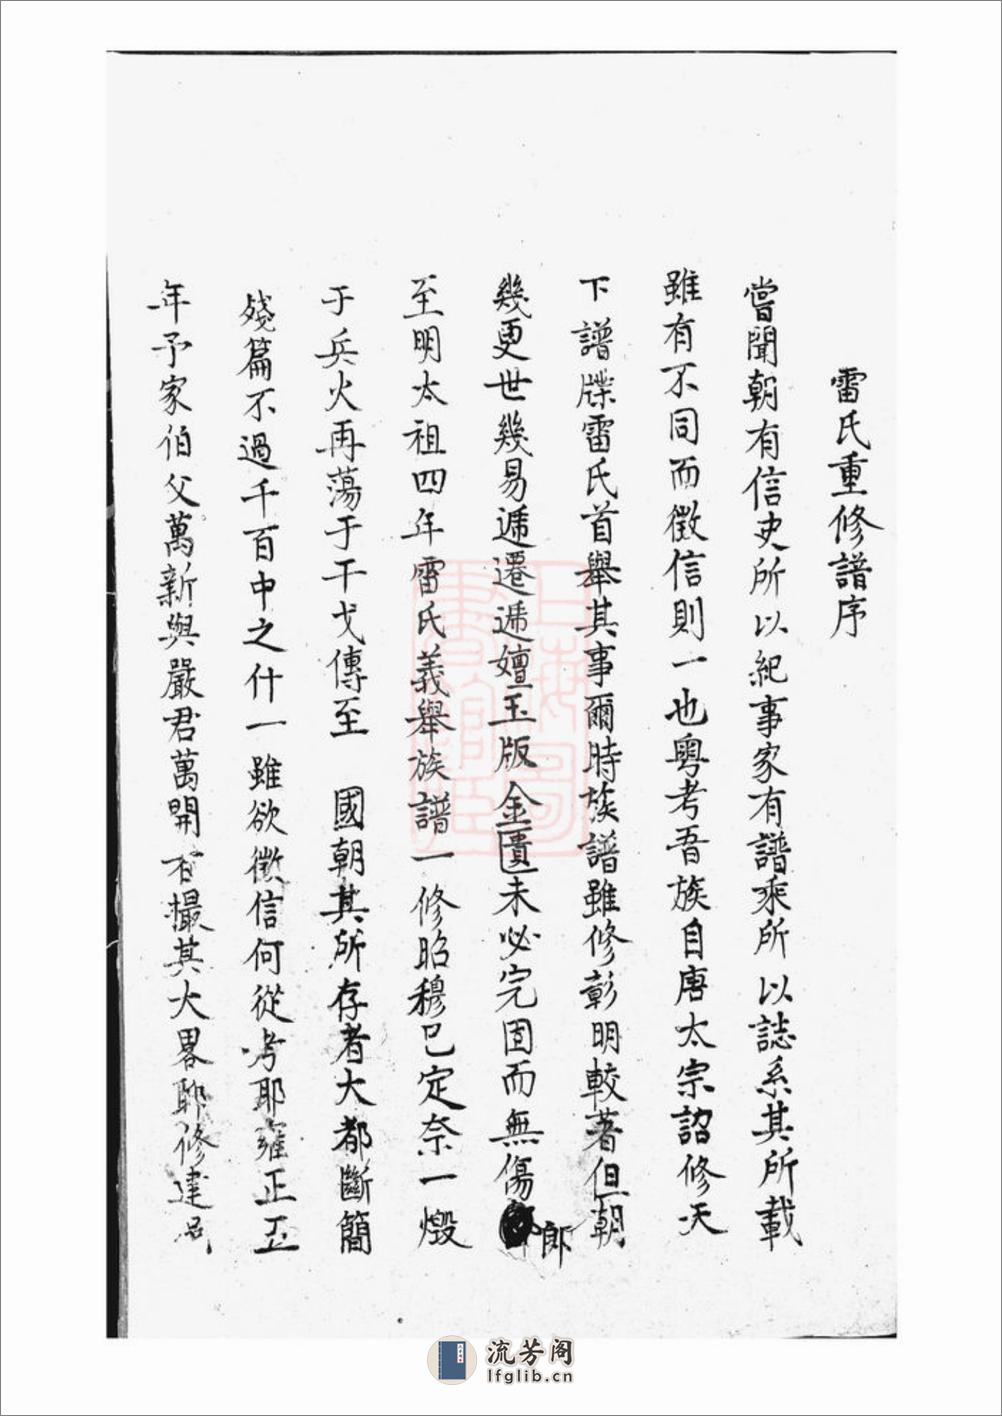 雷氏重修譜序
嘗聞朝有信史所以紀事家有譜乘所以誌系其所載
雖有不同而徵信則一也粵考吾族自唐太宗詔修天
下譜牒雷氏首舉其事爾時族譜雖修彰明較著但朝
幾更世幾易遞遷遞嬗玉版金匱未必完固而無傷郎
至明太祖四年雷氏義舉族譜一修昭穆已定奈一燬
于兵火再蕩于干戈傳至 國朝其所存者大都斷簡
殘篇不過千百中之什一雖欲徵信何從考耶雍正五
年予家伯父萬新與嚴君萬開 撮其大畧聊修建
上海圖書館藏
流芳阁
lfglib.cn